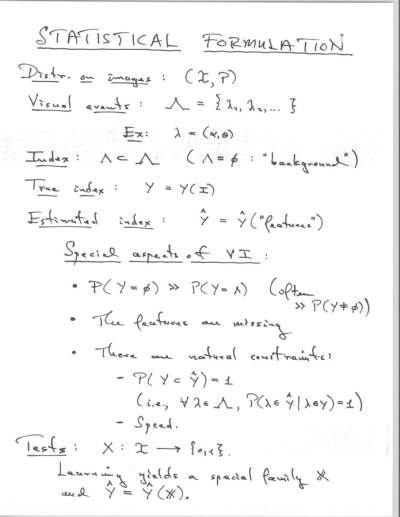 STATISTICAL FORMULATION
Distr. on images : (I, P)
Visual events : Λ = {λ₁, λ₂, ... }
Ex: λ = (α, θ)
Index : Λ ⊂ Λ ( Λ = ϕ : "background")
True index : Y = Y(I)
Estimated index : Ŷ = Ŷ("features")
Special aspects of VI :
• P(Y = ϕ) >> P(Y = Λ) (often
>> P(Y ≠ ϕ))
• The features are missing
• There are natural constraints:
- P(Y ⊂ Ŷ) = 1
(i.e., ∀ λ ∈ Λ, P(λ ∈ Ŷ | λ ∈ Y) = 1)
- Speed.
Tests : X : I → {0,1}.
Learning yields a special family 𝕏
and Ŷ = Ŷ(𝕏).